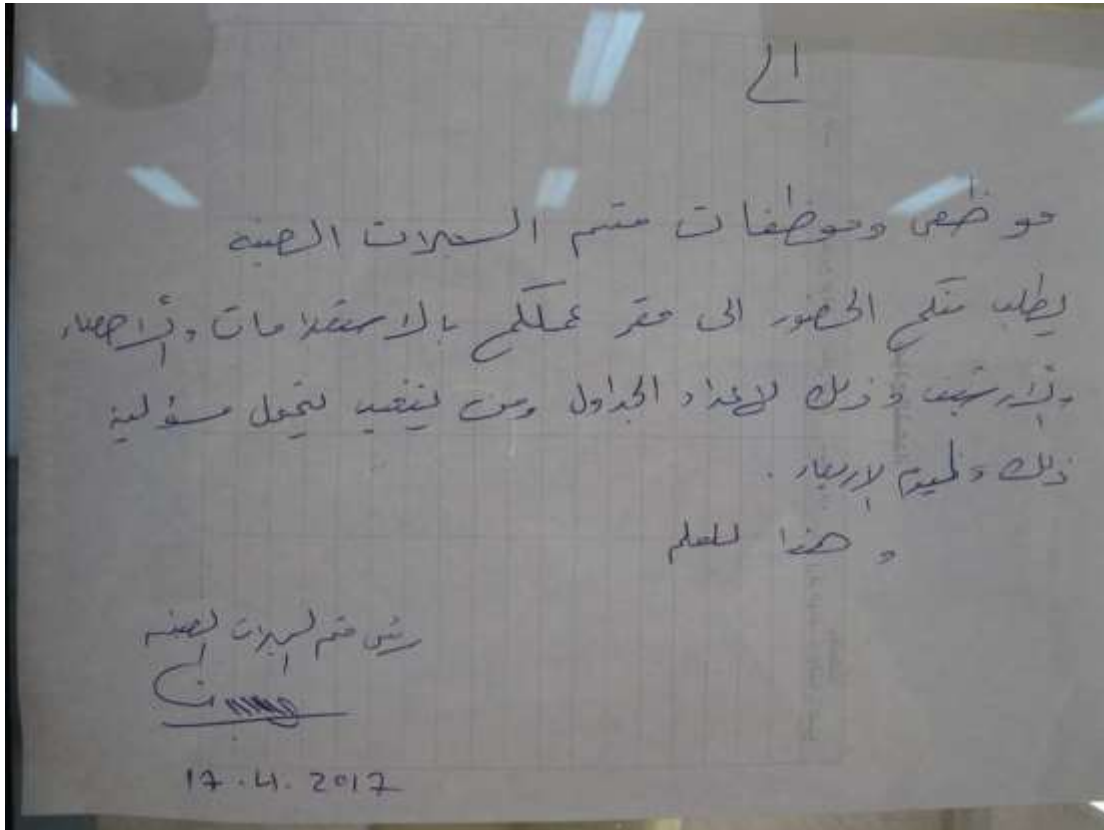 الى
موظفى وموظفات قسم السجلات الطبية
يطلب منكم الحضور الى مقر عملكم بالاستعلامات والاحصاء
والارشيف وذلك لإعداد الجداول ومن يتغيب يتحمل مسؤلية
ذلك وليوم الاربعاء .
و هذا للعلم
رئيس قسم السجلات الطبية
17.4.2017